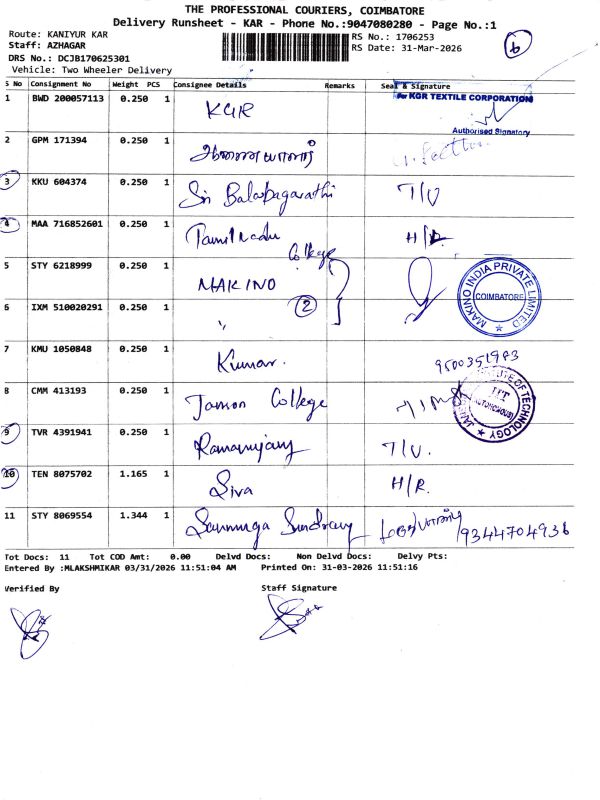 THE PROFESSIONAL COURIERS, COIMBATORE
Delivery Runsheet - KAR - Phone No.:9047080280 - Page No.:1
Route: KANIYUR KAR
RS No.: 1706253
Staff: AZHAGAR
RS Date: 31-Mar-2026
DRS No.: DCJB170625301
Vehicle: Two Wheeler Delivery
6
S No Consignment No Weight PCS Consignee Details Remarks Seal & Signature
1 BWD 200057113 0.250 1 KGR For KGR TEXTILE CORPORATION
Authorised Signatory
2 GPM 171394 0.250 1
3 KKU 604374 0.250 1 Sri Balabagavathi T/U
4 MAA 716852601 0.250 1 Tamil Nadu College H/R
5 STY 6218999 0.250 1 MAKINO
MAKINO INDIA PRIVATE LIMITED COIMBATORE
6 IXM 510020291 0.250 1 " 2
7 KMU 1050848 0.250 1 Kumar. 9500351983
8 CMM 413193 0.250 1 Janson College
INSTITUTE OF TECHNOLOGY JIT (AUTONOMOUS)
9 TVR 4391941 0.250 1 T/U.
10 TEN 8075702 1.165 1 Siva H/R.
11 STY 8069554 1.344 1 9344704936
Tot Docs: 11 Tot COD Amt: 0.00 Delvd Docs: Non Delvd Docs: Delvy Pts:
Entered By :MLAKSHMIKAR 03/31/2026 11:51:04 AM Printed On: 31-03-2026 11:51:16
Verified By Staff Signature